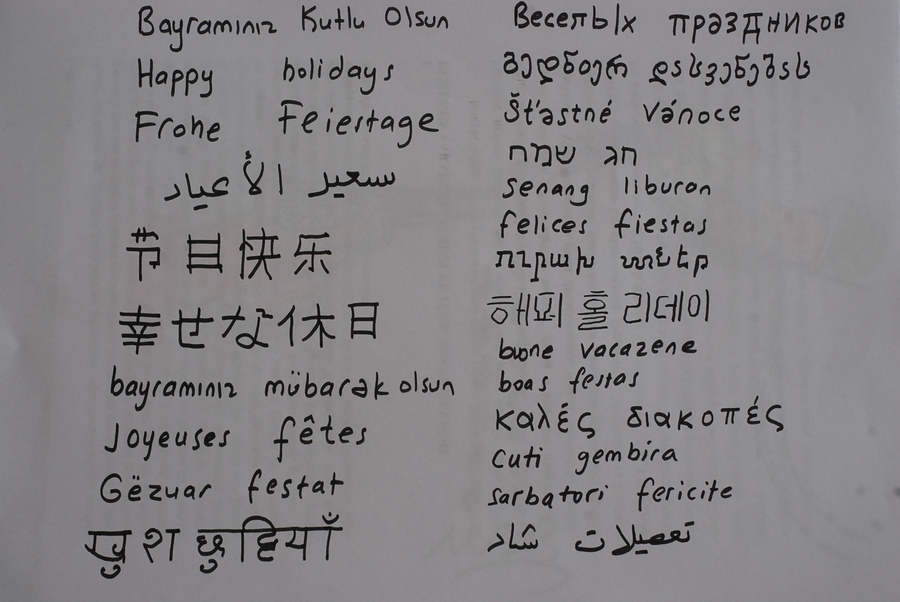 Bayramınız Kutlu Olsun
Happy holidays
Frohe Feiertage
سعير الأعياد
节日快乐
幸せな休日
bayramınız mübarək olsun
Joyeuses fêtes
Gëzuar festat
खुश छुट्टियाँ
Веселых праздников
ბედნიერ დასვენებას
Šťastné Vánoce
חג שמח
senang liburan
felices fiestas
ուրախ տոներ
해피 홀리데이
buone vacazene
boas festas
καλές διακοπές
cuti gembira
sarbatori fericite
تعصیلات شاد